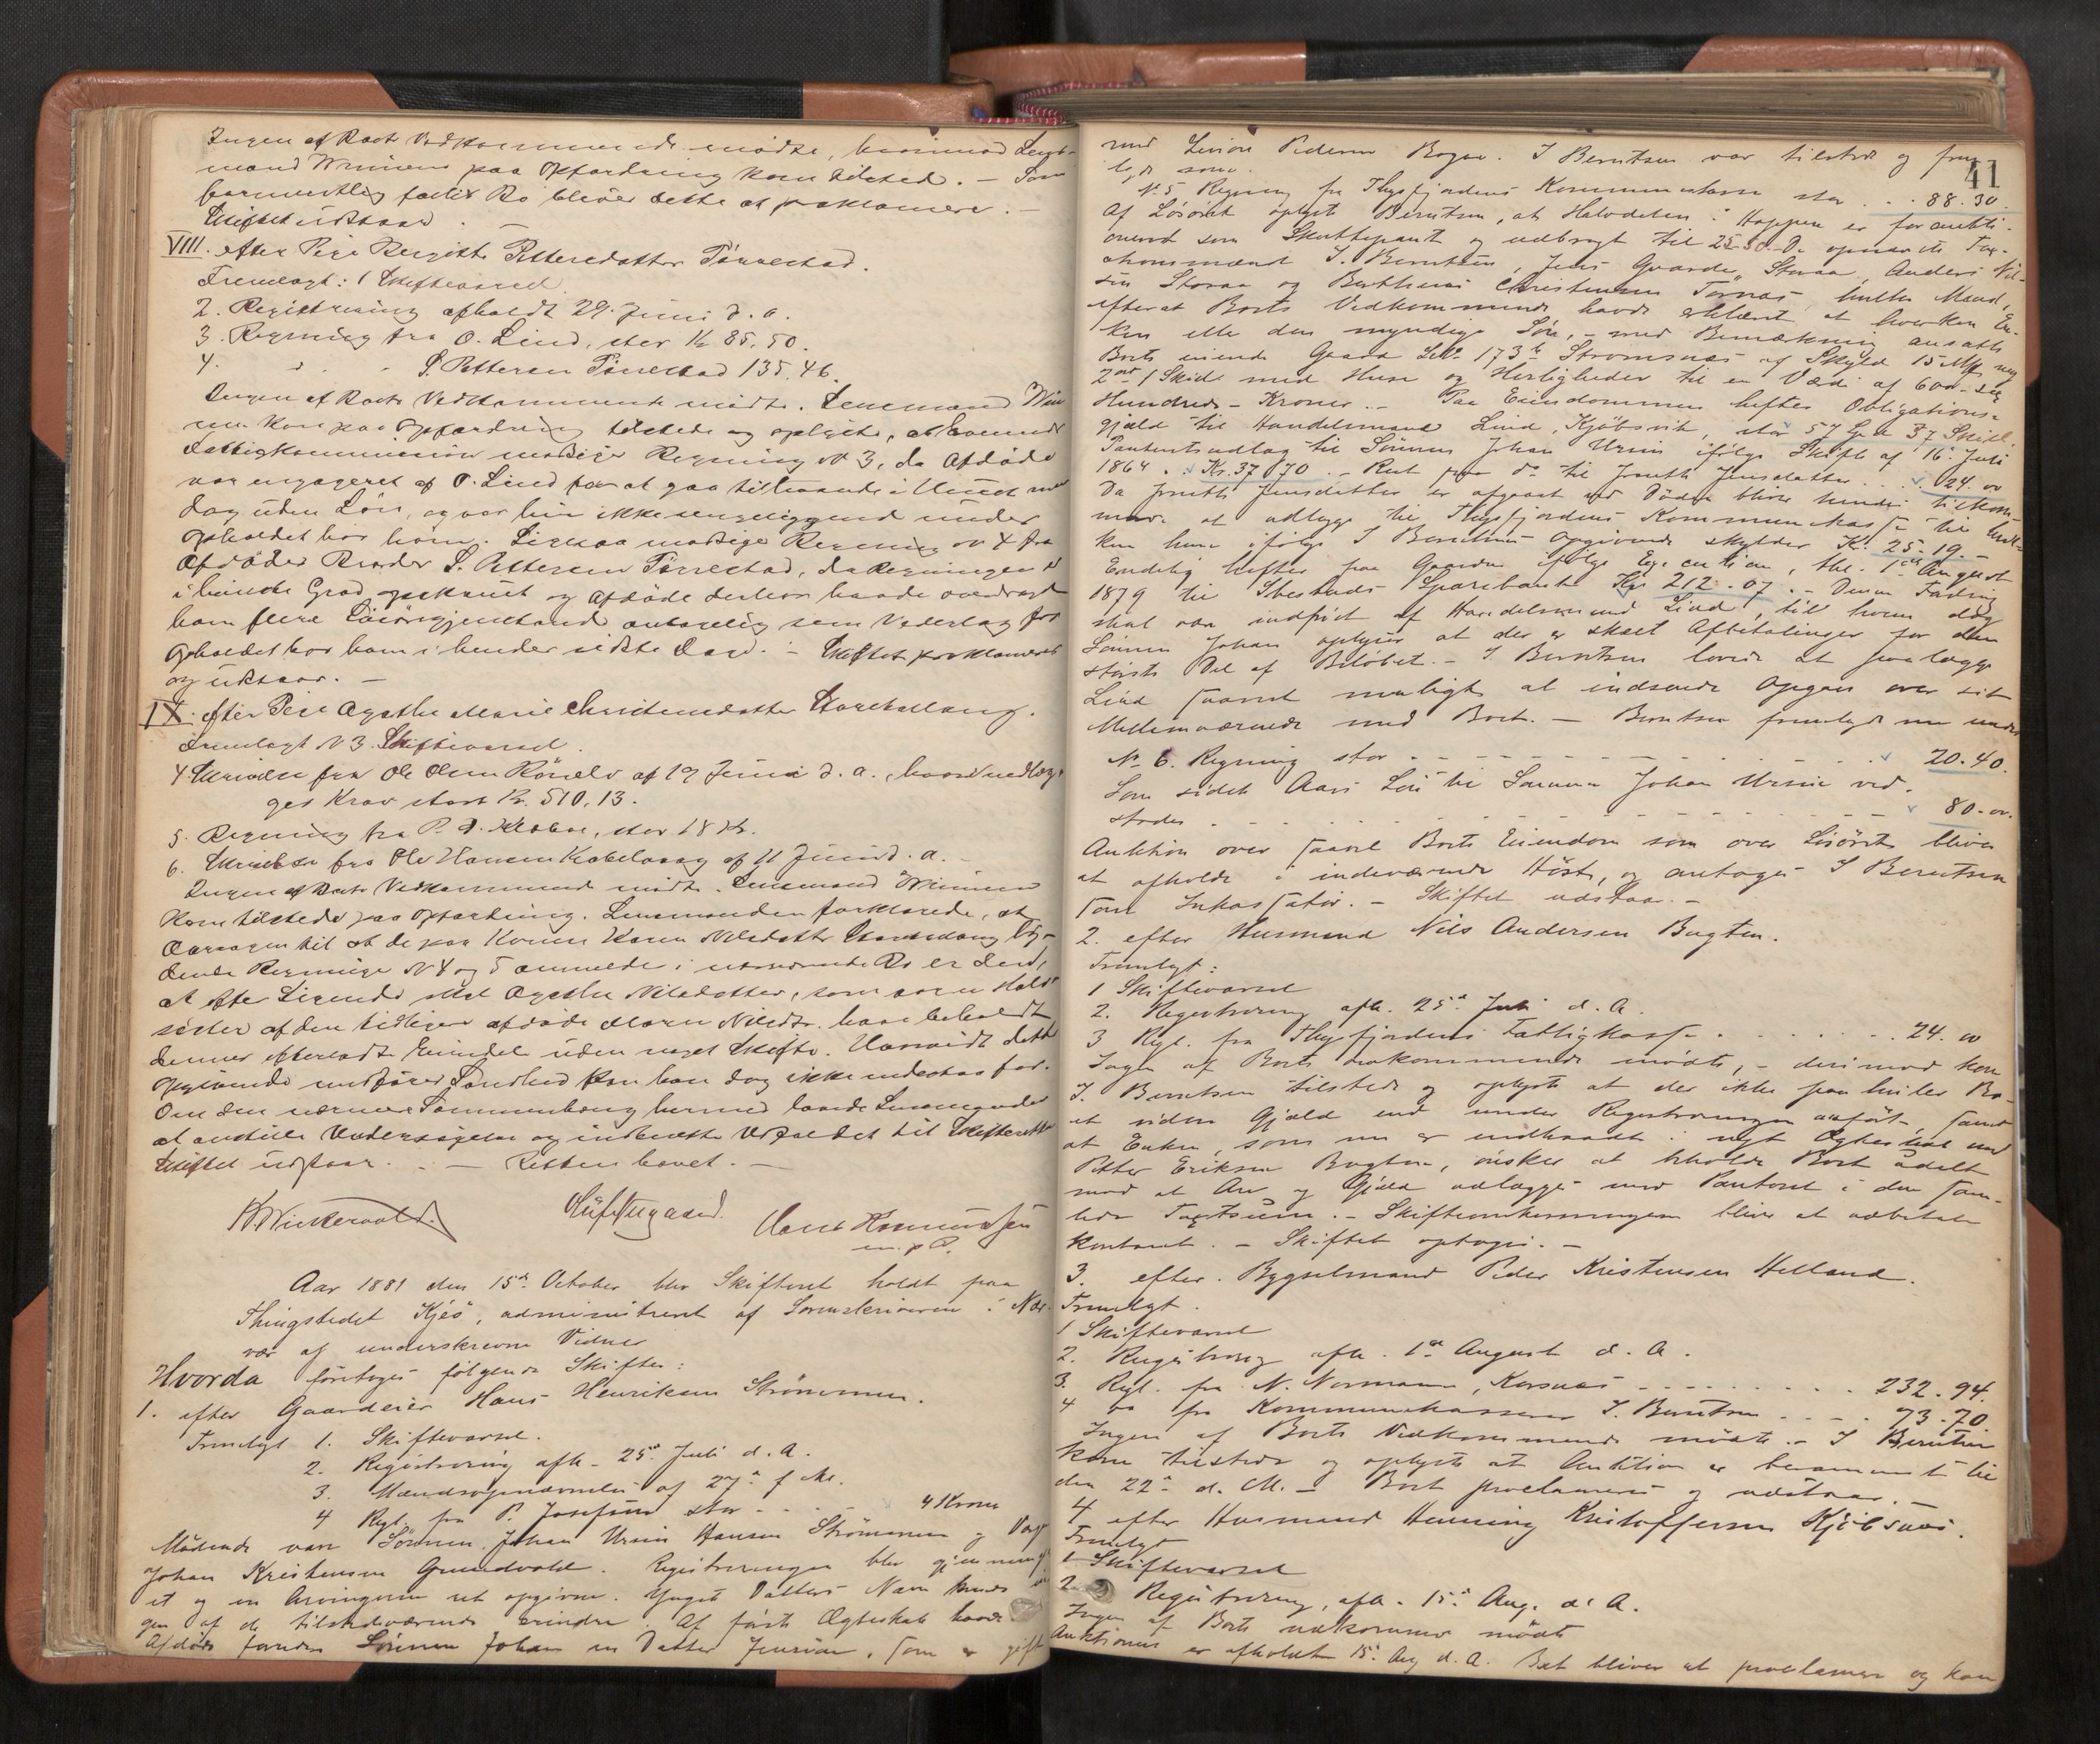 Ingen af Boets Vedkommende mødte, hvorimod Lens-
mand Wininer paa Opfordring kom tilstede. - Som
formentlig fallit Bo bliver dette at proklamere. -
Skiftet udstaar.
VIII. efter Pige Bergitte Pettersdatter Tørrestad.
Fremlagt: 1 Skiftevarsel.
2. Registrering afholdt 29. Juni d. a.
3. Regning fra O. Lind, stor Kr 85.50.
4. " " S. Pettersen Tørrestad 135.46.
Ingen af Boets Vedkommende mødte. Lensmand
kom paa Opfordring tilstede og oplyste, at
Fattigkommissionen modsiger Regning N 3, da Afdøde
var engageret af O. Lind for at gaa tilhaande i
dag uden Løn, og var hun ikke sengeliggend under
Opholdet hos ham. Ligesaa modsiges Regning N 4 fra
Afdødes Broder S. Pettersen Tørrestad, da Regningen er
i høieste Grad opskruet og Afdøde desuden havde overdraget
ham flere Løsøregjenstande antagelig som Vederlag for
Opholdet hos ham i hendes sidste Dage. - Skiftet proklameres
og udstaar. -
IX. efter Pige Agathe Marie Christensdatter
Fremlagt N 3. Skiftevarsel.
4 Skrivelse fra Ole Olsen af 19 Juni d. a., hvorved
ges Krav stort Kr. 510.13.
5. Regning fra P. stor 18 Kr.
6. Skrivelse fra Ole Hansen af 11 Juni d. a.
Ingen af Boets Vedkommende mødte. Lensmand Wininer
kom tilstede paa Opfordring. Lensmanden forklarede, at
Aarsagen til at de paa Konen Karen Nilsdatter
dende Regninger N 4 og 5 anmeldes i nærværende Bo er den,
at efter Sigende skal Agathe Nilsdatter, som var en Halv-
søster af den tidligere afdøde Maren Nilsdtr. have beholdt
dennes efterladte Eiendele uden noget Skifte. Hvorvidt dette
Opgivende medfører Sandhed kan han dog ikke indestaa for.
Om den nærmere Sammenhæng hermed lovede Lensmanden
at anstille Undersøgelse og indberette Udfaldet til Skifteretten
Skiftet udstaar. - Retten hævet. -
m. p. P.
Aar 1881 den 15de October blev Skifteret holdt paa
Thingstedet "Kjés", administreret af Sorenskriveren i Nær-
vær af underskrevne Vidner
Hvorda foretoges følgende Skifter:
1. efter Gaardeier Hans Henriksen Strømmen.
Fremlagt 1. Skiftevarsel.
2. Registrering afh. 25de Juli d. A.
3. Mandsopnævnelse af 27de f. M.
4 Regl. fra P. Josefsen stor - - 4 Kroner
Mødende vare Sønnen Johan Ursin Hansen Strømmen og
Johan Kristensen Grundvold. Registreringen blev gjennemg
et og en Arvingerne ret opgivne. Yngste Datters Navn kunde in
gen af de tilstedeværende erindre. Af første Ægteskab havde
Afdøde foruden Sønnen Johan en Datter , som er gift
41
med Peder . I Berntsen var tilstede og frem
lagde som.
N. 5 Regning fra Thysfjordens Kommunekasse stor . . . 88.30.
Af Løsøret oplyste Berntsen, at Halvdelen i Hoppen er foranti-
oneret som Skattepant og udbragt til 25.50. De opnævnte Tax-
ationsmænd I. Berntsen, , Anders Nil-
sen Storaa og Berthius Christensen Tornæs, hvilke Mænd,
efterat Boets Vedkommende havde erklæret at hverken En-
ken eller den myndige Søn, - med Bemærkning ansatte
Boets eiende Gaard LNr 173b Stromsnæs af Skyld 15 Mk ny
2 Ort 1 Skil. med Huse og Herligheder til en Værdi af 600 - sex
Hundrede - Kroner. - Paa Eiendommen hefter Obligations-
gjæld til Handelsmand Lind, Kjøbsvik, stor 57 Spd 37 Skill.
Panteretsudlæg til Sønnen Johan Ursin ifølge Skifte af 16. Juli
1864 . . Kr. 37.070. - Rest paa do til Jensdatter . . . 24.00
Da Jensdatter er afgaaet ved Døden bliver hendes tilkom-
mende at udlægge til Thysfjordens Kommunekasse til hvil-
ken hun ifølge I Berntsens Opgivende skylder Kr. 25.19. -
Endelig hefter paa Gaarden ifølge Execution, thl. 1ste August
1879 til Ibestads Sparebank Kr 212.07. - Denne Fordring
skal være indfriet af Handelsmand Lind, til hvem dog
Sønnen Johan oplyser at der er skeet Afbetalinger for den
største Del af Beløbet. - I. Berntsen lovede at paalægge
Lind saavel muligt at indsende Opgave over sit
Mellemværende med Boet. - Berntsen fremlagde nu under
No 6. Regning stor - - - - 20.40.
Som sidste Aars Løn til Sønnen Johan Ursin ved-
stodes - - - - 80.00.
Auktion over saavel Boets Eiendom som over Løsøret bliver
at afholde i indeværende Høst, og antoges I Berntsen
som Inkassator. - Skiftet udstaar. -
2. efter Husmand Nils Andersen Bugten.
Fremlagt:
1 Skiftevarsel
2. Registrering afh. 25de Juli d. A.
3 Regl. fra Thysfjordens Fattigkasse . . . . . 24.00
Ingen af Boets Vedkommende mødte, - derimod kom
I. Berntsen tilstede og oplyste at der ikke paa hviler Bo-
et videre Gjæld end under Registreringen anført, samt
at Enken, som nu er indtraadt i nyt Ægteskab med
Petter Eriksen Bugten, ønsker at beholde Boet udelt
mod at Arv og Gjæld udlægges med Panteret i den sam-
lede Taxtsum. - Skifteomkostningerne bliver at udbetale
kontant. - Skiftet optoges. -
3. efter Bygselmand Peder Kristensen Helland.
Fremlagt.
1 Skiftevarsel
2. Registrering afh. 1ste August d. A.
3. Regl. fra N. Normann, Korsnæs - - - - 232.94.
4 Do fra Kommunekasserer I. Berntsen - - - 73.70
Ingen af Boets Vedkommende mødte. - I Berntsen
kom tilstede og oplyste at Auktion er berammet til
den 22de d. M. - Boet proclameres og udstaar. -
4 efter Husmand Henning Kristoffersen Kjøbsnæs.
Fremlagt
1 Skiftevarsel
2. Registrering, afh. 15de Aug. d. A.
Ingen af Boets Vedkommende mødte
Auktionen er afholdt 15de Aug d. A. Boet bliver at proclamere og kan